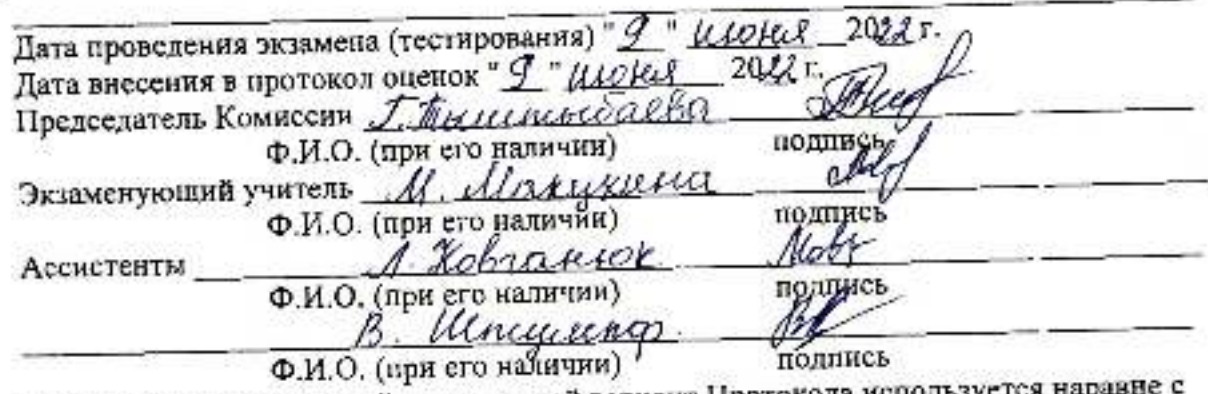 Дата проведения экзамена (тестирования) "9" июня 2022 г.
Дата внесения в протокол оценок "9" июня 2022 г.
Председатель Комиссии Г.
Ф.И.О. (при его наличии) подпись
Экзаменующий учитель М. Макухина
Ф.И.О. (при его наличии) подпись
Ассистенты Л. Ковганюк
Ф.И.О. (при его наличии) подпись
В.
Ф.И.О. (при его наличии) подпись
Протокола используется наравне с